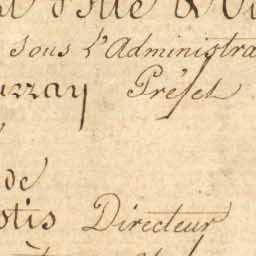 sous l'Administra
urray Préfet
de
otis Directeur